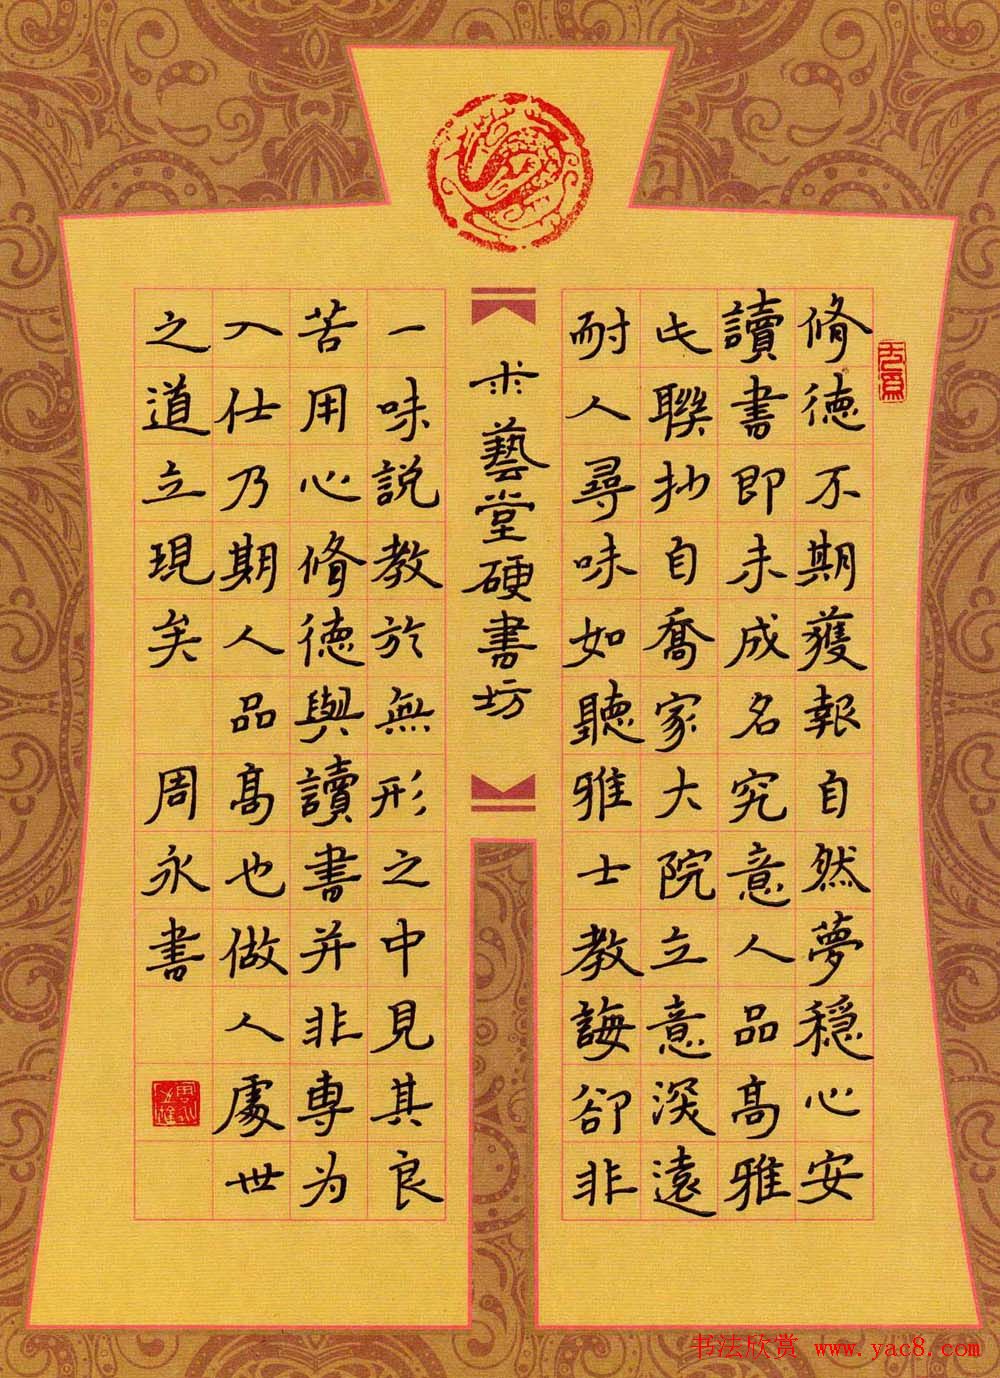 脩德不期獲報自然夢穩心安
讀書即未成名究意人品高雅
此聯抄自喬家大院立意深遠
耐人尋味如聽雅士教誨卻非
藝堂硬書坊
一味説教於無形之中見其良
苦用心脩德與讀書并非專为
入仕乃期人品高也做人處世
之道立現矣 周永書
书法欣赏 www.yac8.com